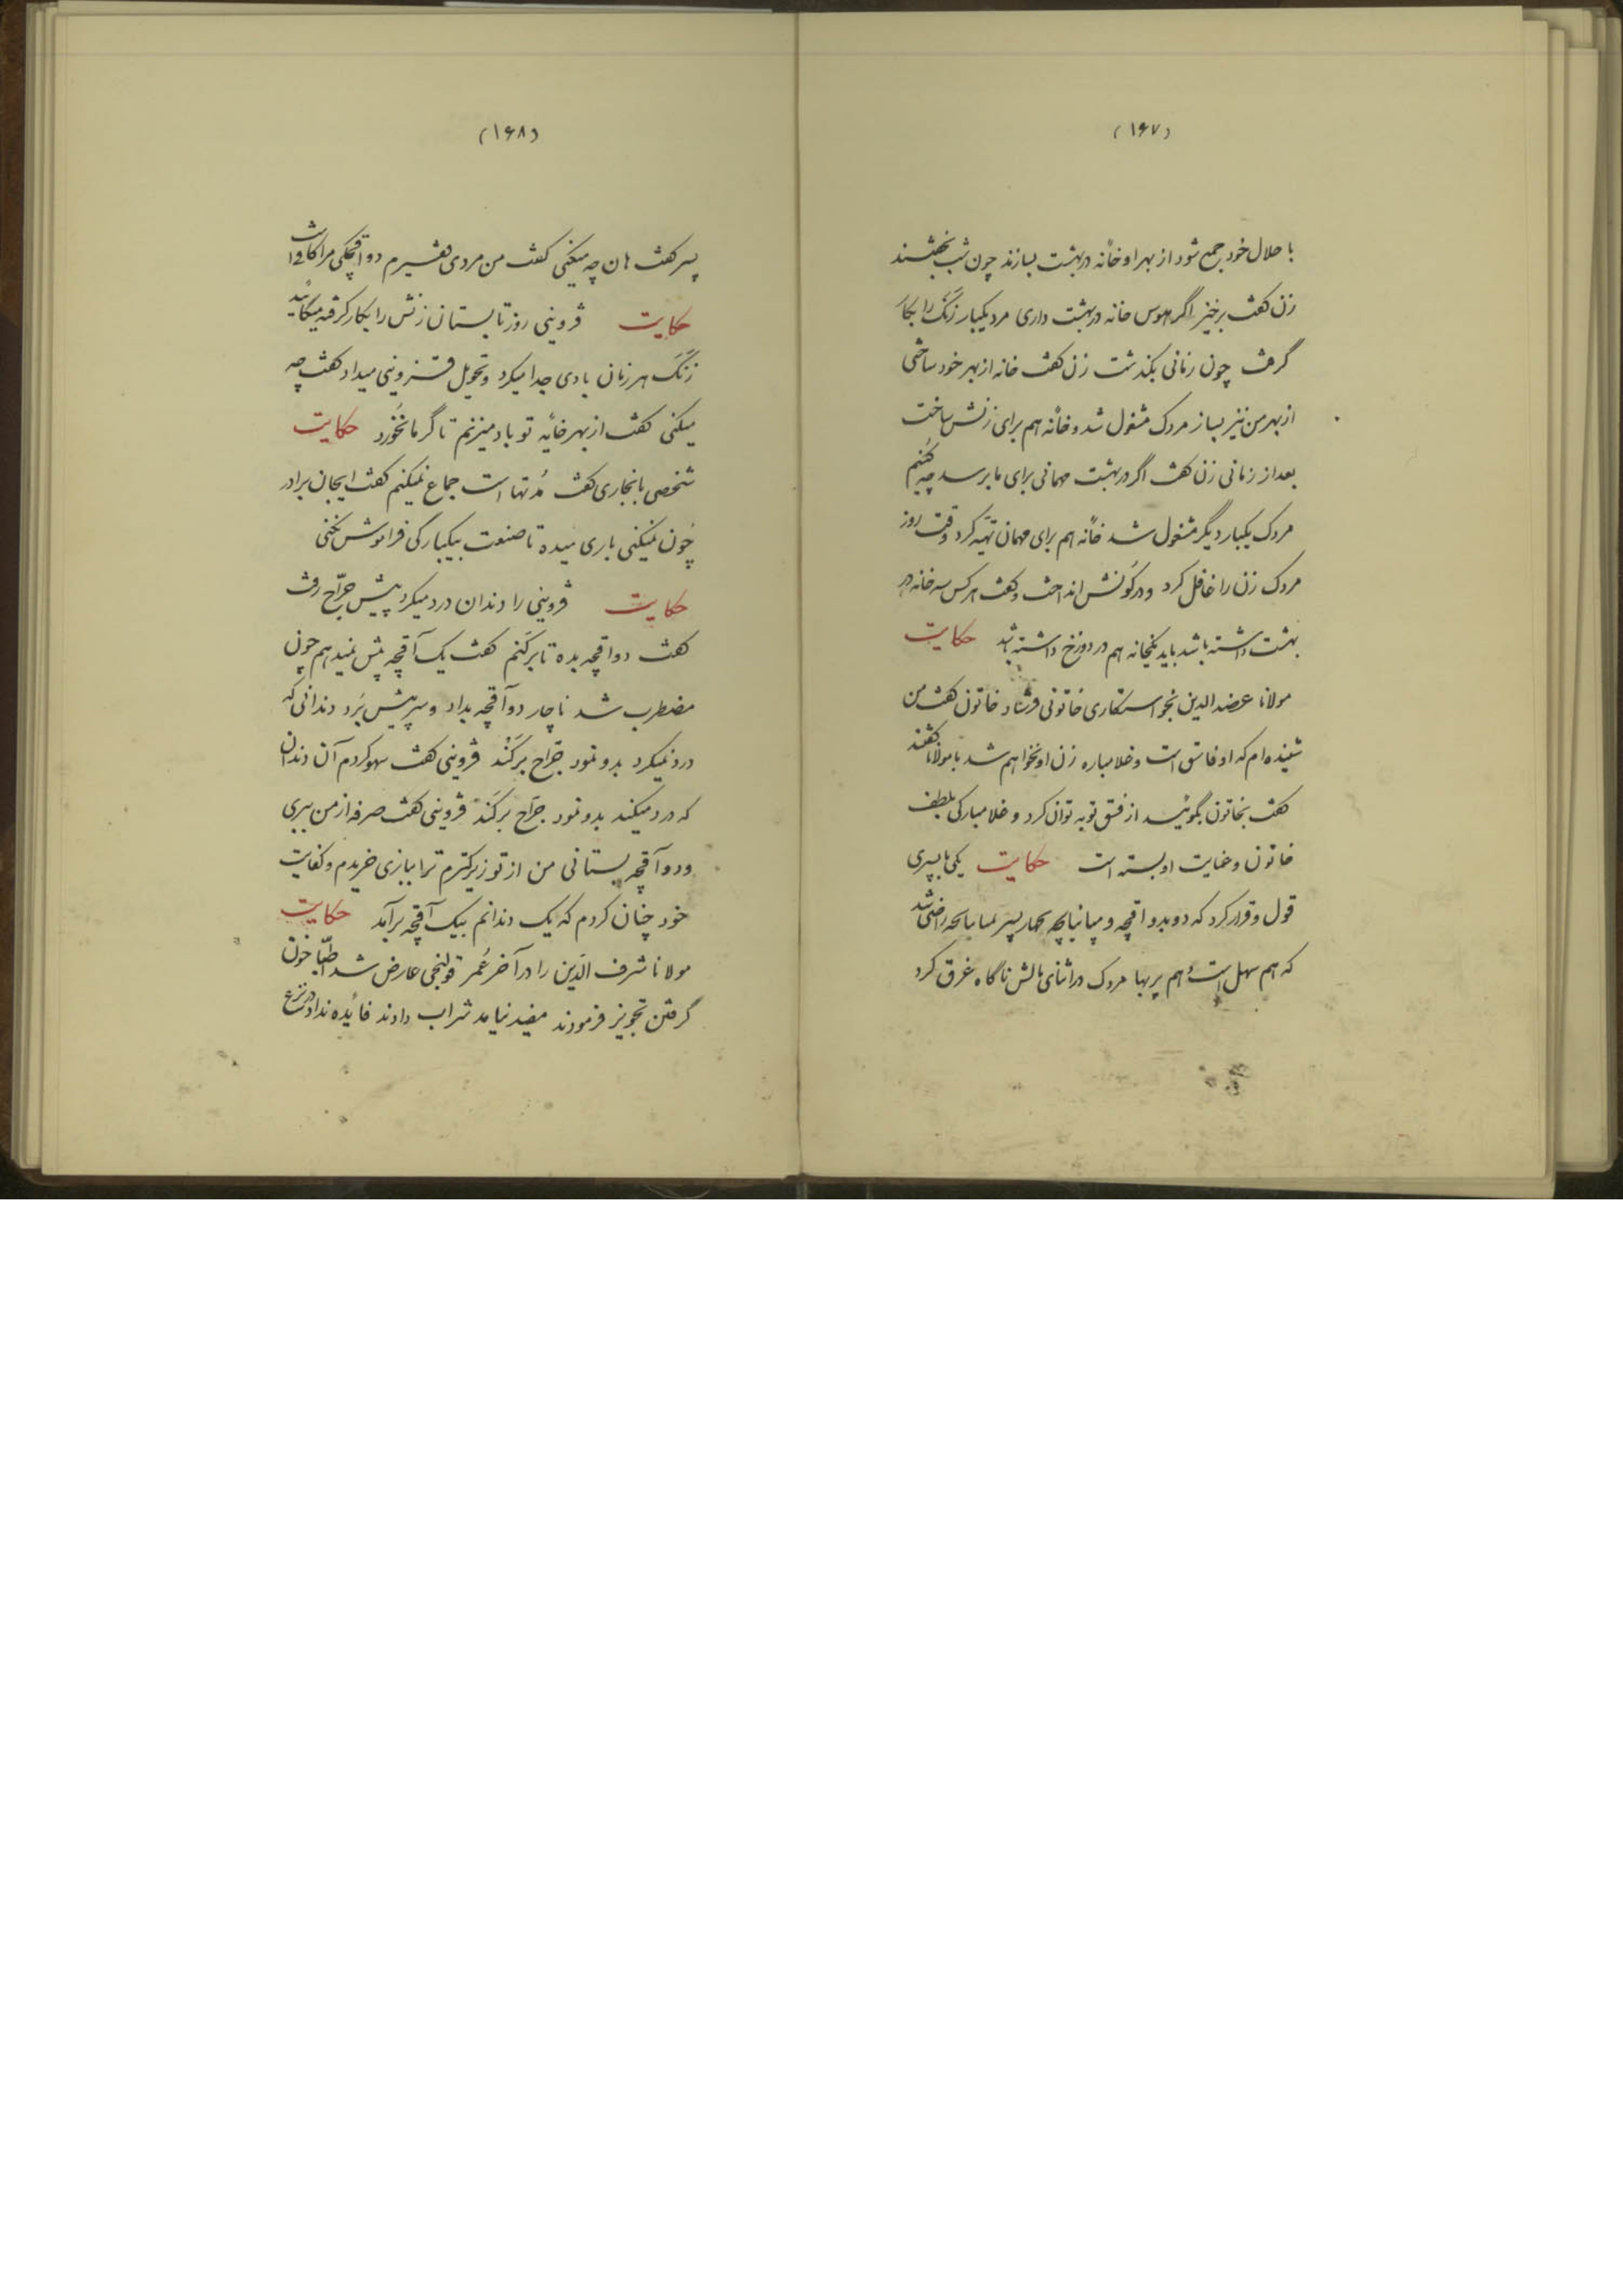 (۱۶۷)
با حلال خود جمع شود از بهر او خانهٔ در بهشت بسازند چون شب بخفتند
زن گفت برخیز اگر هوس خانه در بهشت داری مرد یکبار زنک را بکار
گرفت چون زمانی بگذشت زن گفت خانه از بهر خود ساختی
از بهر من نیز بساز مردک مشغول شد و خانهٔ هم برای زنش ساخت
بعد از زمانی زن گفت اگر در بهشت مهمانی برای ما برسد چه کنیم
مردک یکبار دیگر مشغول شد خانهٔ هم برای مهمان تهیّه کرد وقت روز
مردک زن را غافل کرد و در کونش انداخت و گفت هر کس سه خانه در
بهشت داشته باشد باید یکخانه هم در دوزخ داشته باشد حکایت
مولانا عضد الدین بخواستکاری خاتونی فرستاد خاتون گفت من
شنیده‌ام که او فاسق است و غلامباره زن او نخواهم شد با مولانا گفتند
گفت بخاتون بگوئید از فسق توبه توان کرد و غلامبارکی بلطف
خاتون و عنایت او بسته است حکایت یکی با پسری
قول و قرار کرد که دو بدو اقچه و میانپاچه بچهار پسر بمیانپاچه راضی شد
که هم سهل است و هم پر بها مردک در اثنای مالش ناگاه غرق کرد
(۱۶۸)
پسر گفت هان چه میکنی گفت من مردی فقیرم دو اقچگی مرا کافی است
حکایت قزوینی روز تابستان زنش را بکار گرفته میگائید
زنک هر زمان بادی جدا میکرد و تحویل قزوینی میداد گفت چه
میکنی گفت از بهر خایهٔ تو باد میزنم تا گرما نخورد حکایت
شخصی با نجاری گفت مُدتها است جماع نمیکنم گفت ایجان برادر
چُون نمیکنی باری میده تا صنعت بیکبارگی فراموش نکنی
حکایت قزوینی را دندان درد میکرد پیش جرّاح رفت
گفت دو اقچه بده تا برکَنم گفت یک آقچه بیش نمیدهم چون
مضطرب شد ناچار دو آقچه بداد و سر پیش بُرد دندانی که
درد نمیکرد بدو نمود جرّاح برکَند قزوینی گفت سهو کردم آن دندان
که درد میکند بدو نمود جرّاح برکَند قزوینی گفت صرفه از من ببری
و دو آقچه بستانی من از تو زیرکترم ترا ببازی خریدم و کفایت
خود چنان کردم که یک دندانم بیک آقچه برآمد حکایت
مولانا شرف الدّین را در آخر عُمر قولنجی عارض شد اطبّا خون
گرفتن تجویز فرمودند مفید نیامد شراب دادند فائده نداد در نزع